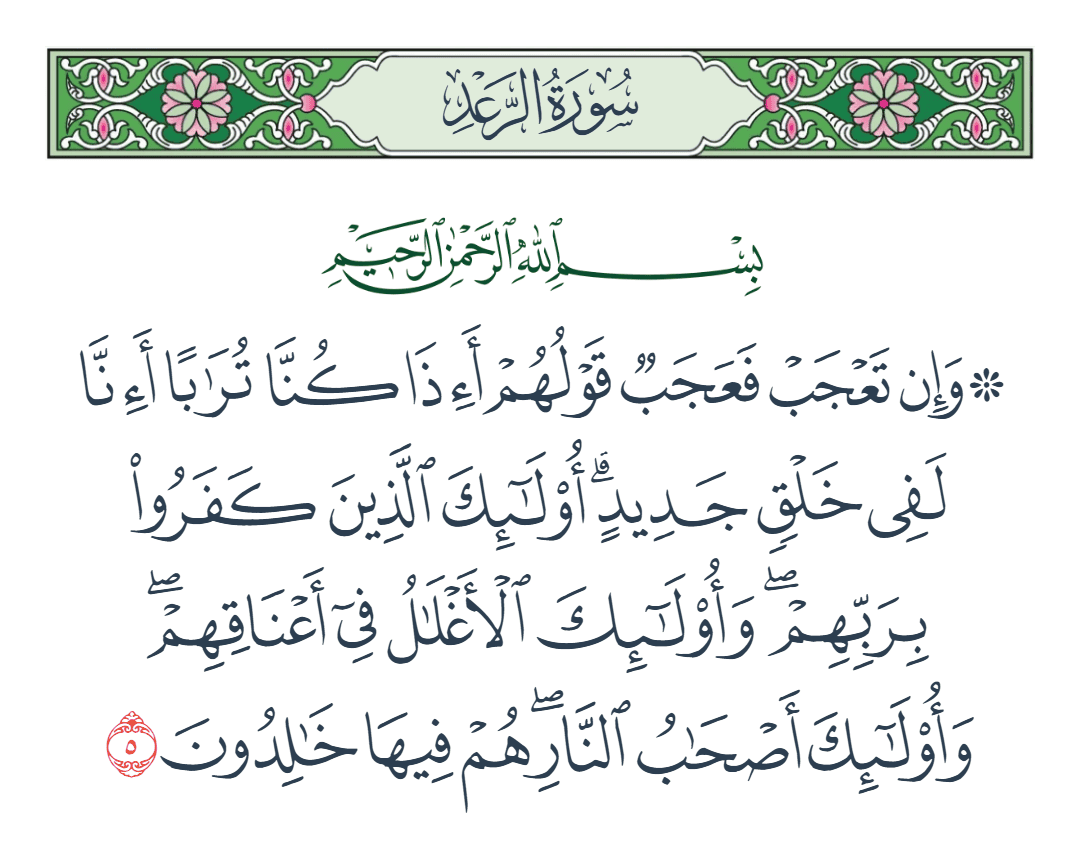 سُورَةُ الرَّعْدِ
بِسْمِ ٱللَّهِ ٱلرَّحْمَٰنِ ٱلرَّحِيمِ
۞ وَإِن تَعْجَبْ فَعَجَبٌ قَوْلُهُمْ أَءِذَا كُنَّا تُرَٰبًا أَءِنَّا
لَفِى خَلْقٍ جَدِيدٍ ۗ أُو۟لَـٰٓئِكَ ٱلَّذِينَ كَفَرُوا۟
بِرَبِّهِمْ ۖ وَأُو۟لَـٰٓئِكَ ٱلْأَغْلَـٰلُ فِىٓ أَعْنَاقِهِمْ ۖ
وَأُو۟لَـٰٓئِكَ أَصْحَـٰبُ ٱلنَّارِ ۖ هُمْ فِيهَا خَـٰلِدُونَ ٥